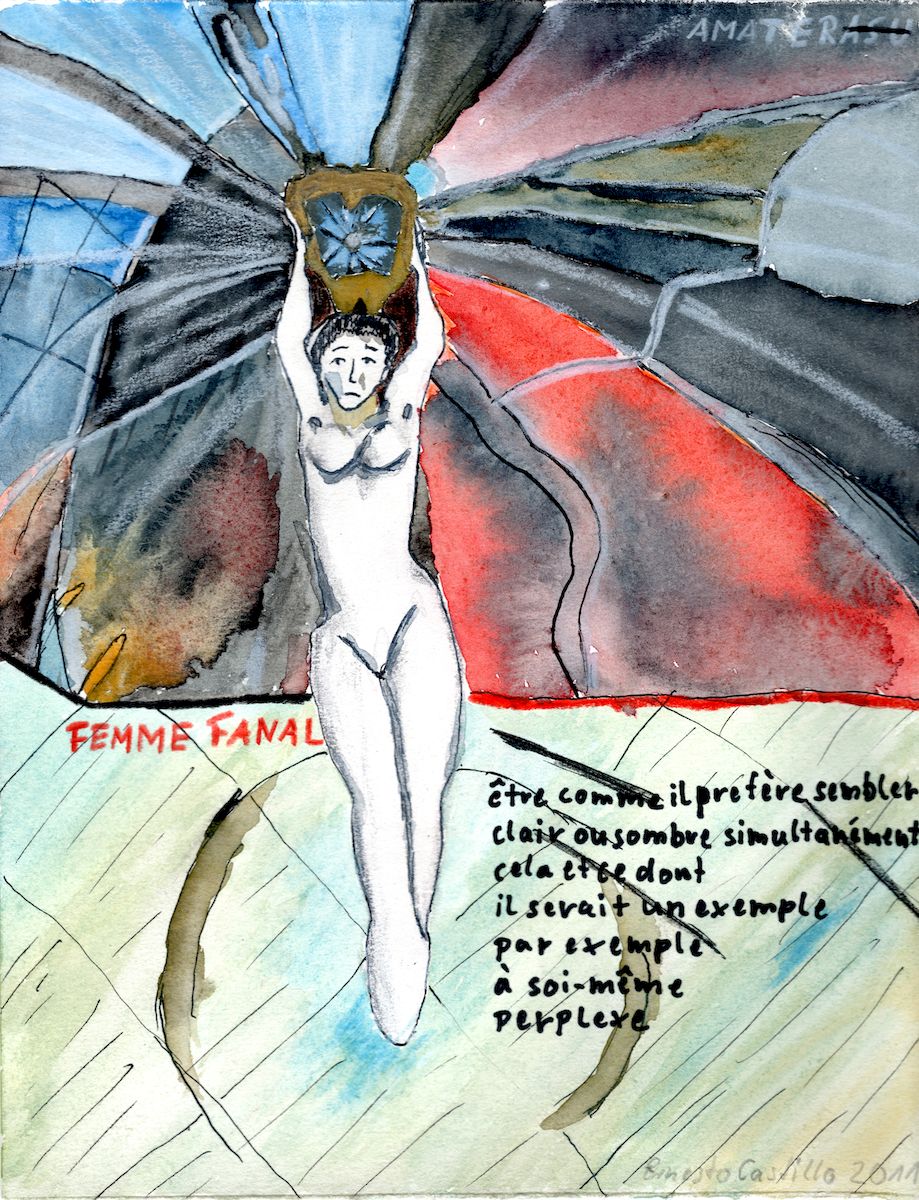 AMATERASU
FEMME FANAL
être comme il préfère sembler
clair ou sombre simultanément
cela et ce dont
il serait un exemple
par exemple
à soi-même
perplexe
Ernesto Castillo 2011